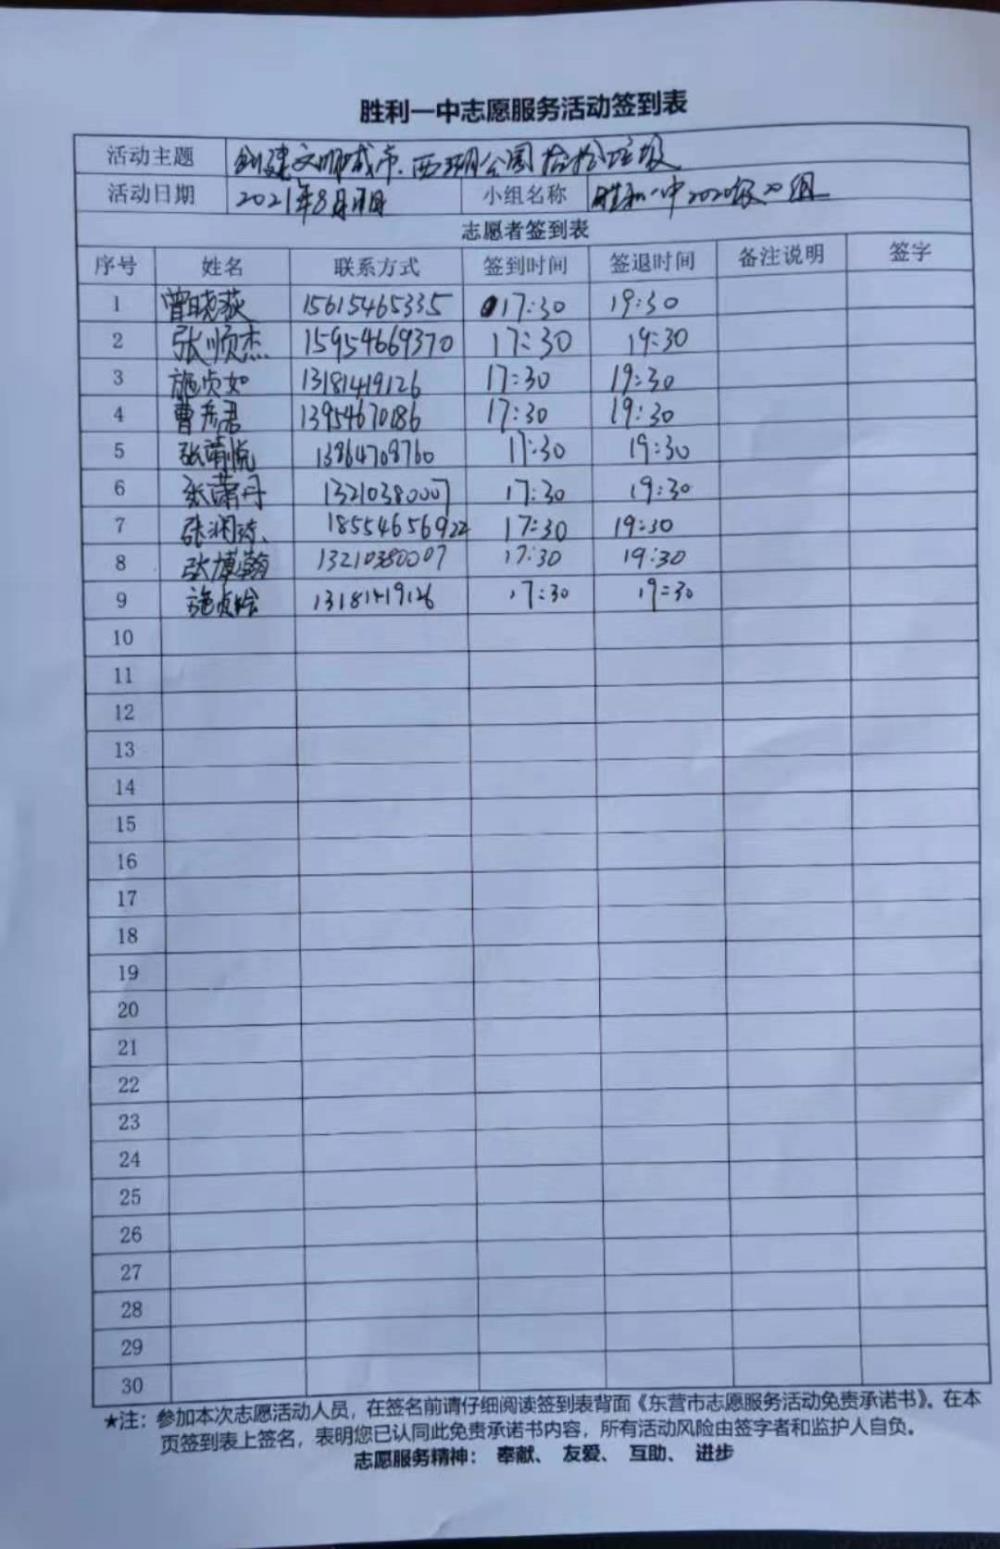 胜利一中志愿服务活动签到表
活动主题 创建文明城市、西湖公园捡拾垃圾
活动日期 2021年8月 小组名称 胜利一中2020级20组
志愿者签到表
序号 姓名 联系方式 签到时间 签退时间 备注说明 签字
1 曾晓荻 15615465335 17:30 19:30
2 张顺杰 15954669370 17:30 19:30
3 施贞如 13181419126 17:30 19:30
4 曹彦君 13954670186 17:30 19:30
5 张萌悦 13864708760 17:30 19:30
6 张潇丹 13210380007 17:30 19:30
7 张润 18554656922 17:30 19:30
8 张博翰 13210380007 17:30 19:30
9 施贞 13181419126 17:30 19:30
10
11
12
13
14
15
16
17
18
19
20
21
22
23
24
25
26
27
28
29
30
★注：参加本次志愿活动人员，在签名前请仔细阅读签到表背面《东营市志愿服务活动免责承诺书》。在本
页签到表上签名，表明您已认同此免责承诺书内容，所有活动风险由签字者和监护人自负。
志愿服务精神： 奉献、 友爱、 互助、 进步